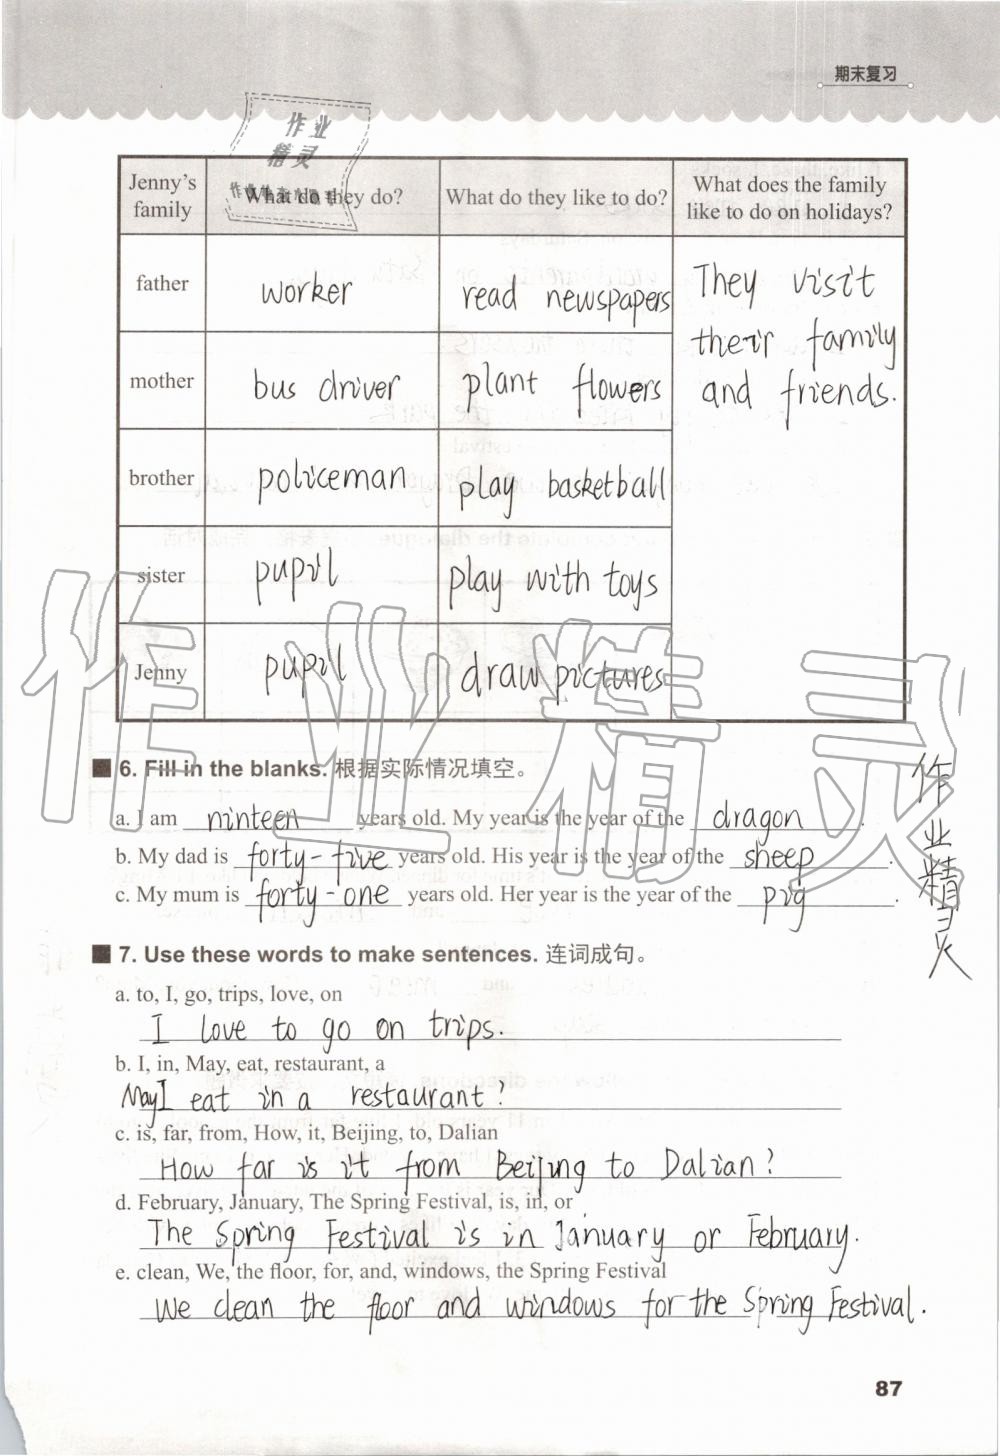 期末复习
作业
精灵
Jenny's family What do they do? What do they like to do? What does the family like to do on holidays?
father worker read newspapers They visit their family and friends.
mother bus driver plant flowers
brother policeman play basketball
sister pupil play with toys
Jenny pupil draw pictures
作业精灵
6. Fill in the blanks. 根据实际情况填空。
a. I am ninteen years old. My year is the year of the dragon.
b. My dad is forty-five years old. His year is the year of the sheep.
c. My mum is forty-one years old. Her year is the year of the pig.
作业精灵
7. Use these words to make sentences. 连词成句。
a. to, I, go, trips, love, on
I love to go on trips.
b. I, in, May, eat, restaurant, a
May I eat in a restaurant?
c. is, far, from, How, it, Beijing, to, Dalian
How far is it from Beijing to Dalian?
d. February, January, The Spring Festival, is, in, or
The Spring Festival is in January or February.
e. clean, We, the floor, for, and, windows, the Spring Festival
We clean the floor and windows for the Spring Festival.
87